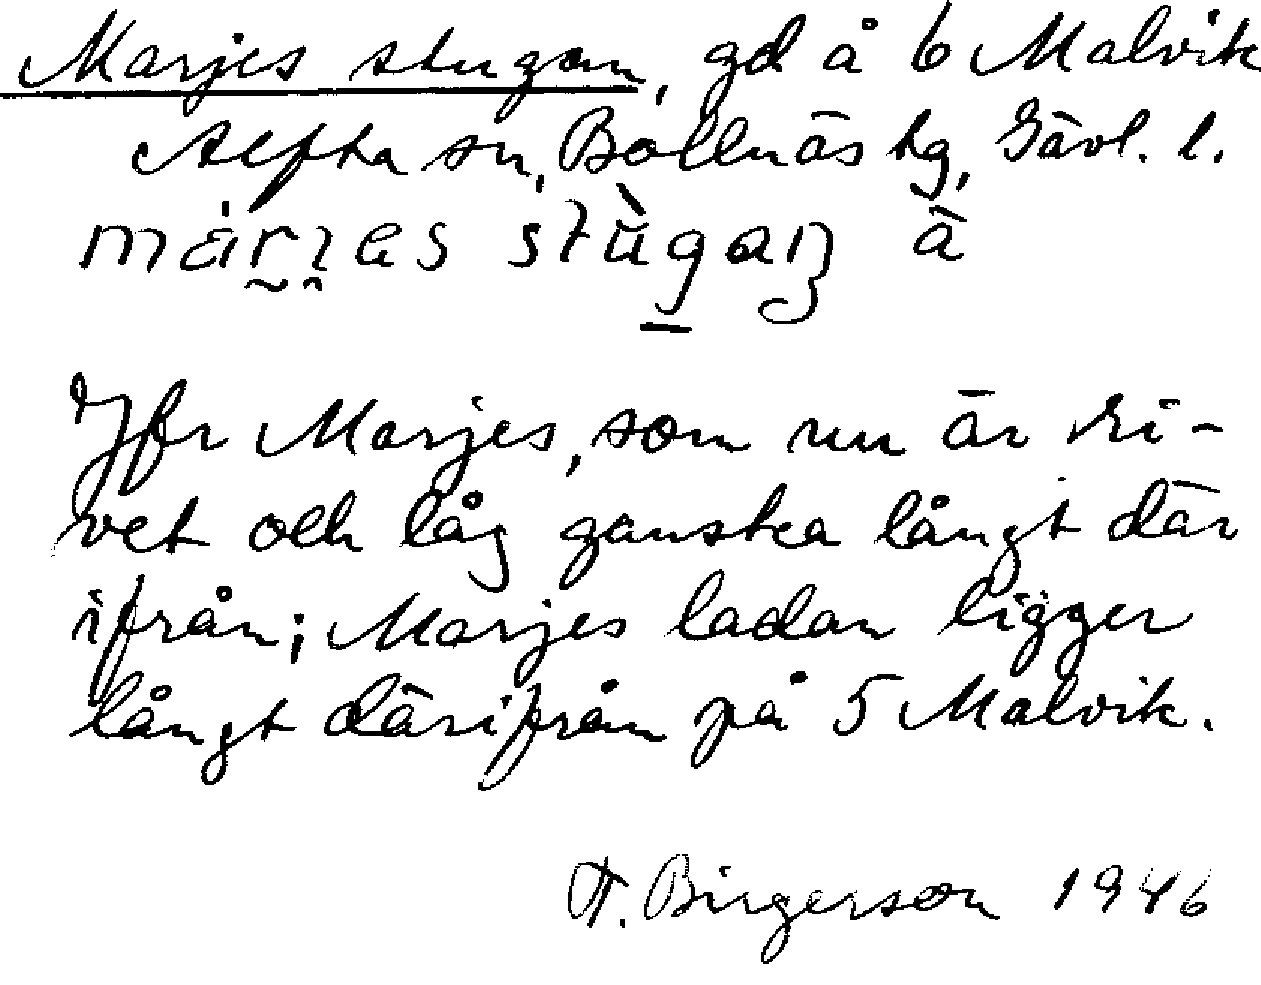 Marjes stugan, gd å 6 Malvik
Alfta sn, Bollnäs tg, Gävl. l.
Jfr Marjes, som nu är ri-
vet och låg ganska långt där
ifrån; Marjes ladan ligger
långt därifrån på 5 Malvik.
F. Birgerson 1946